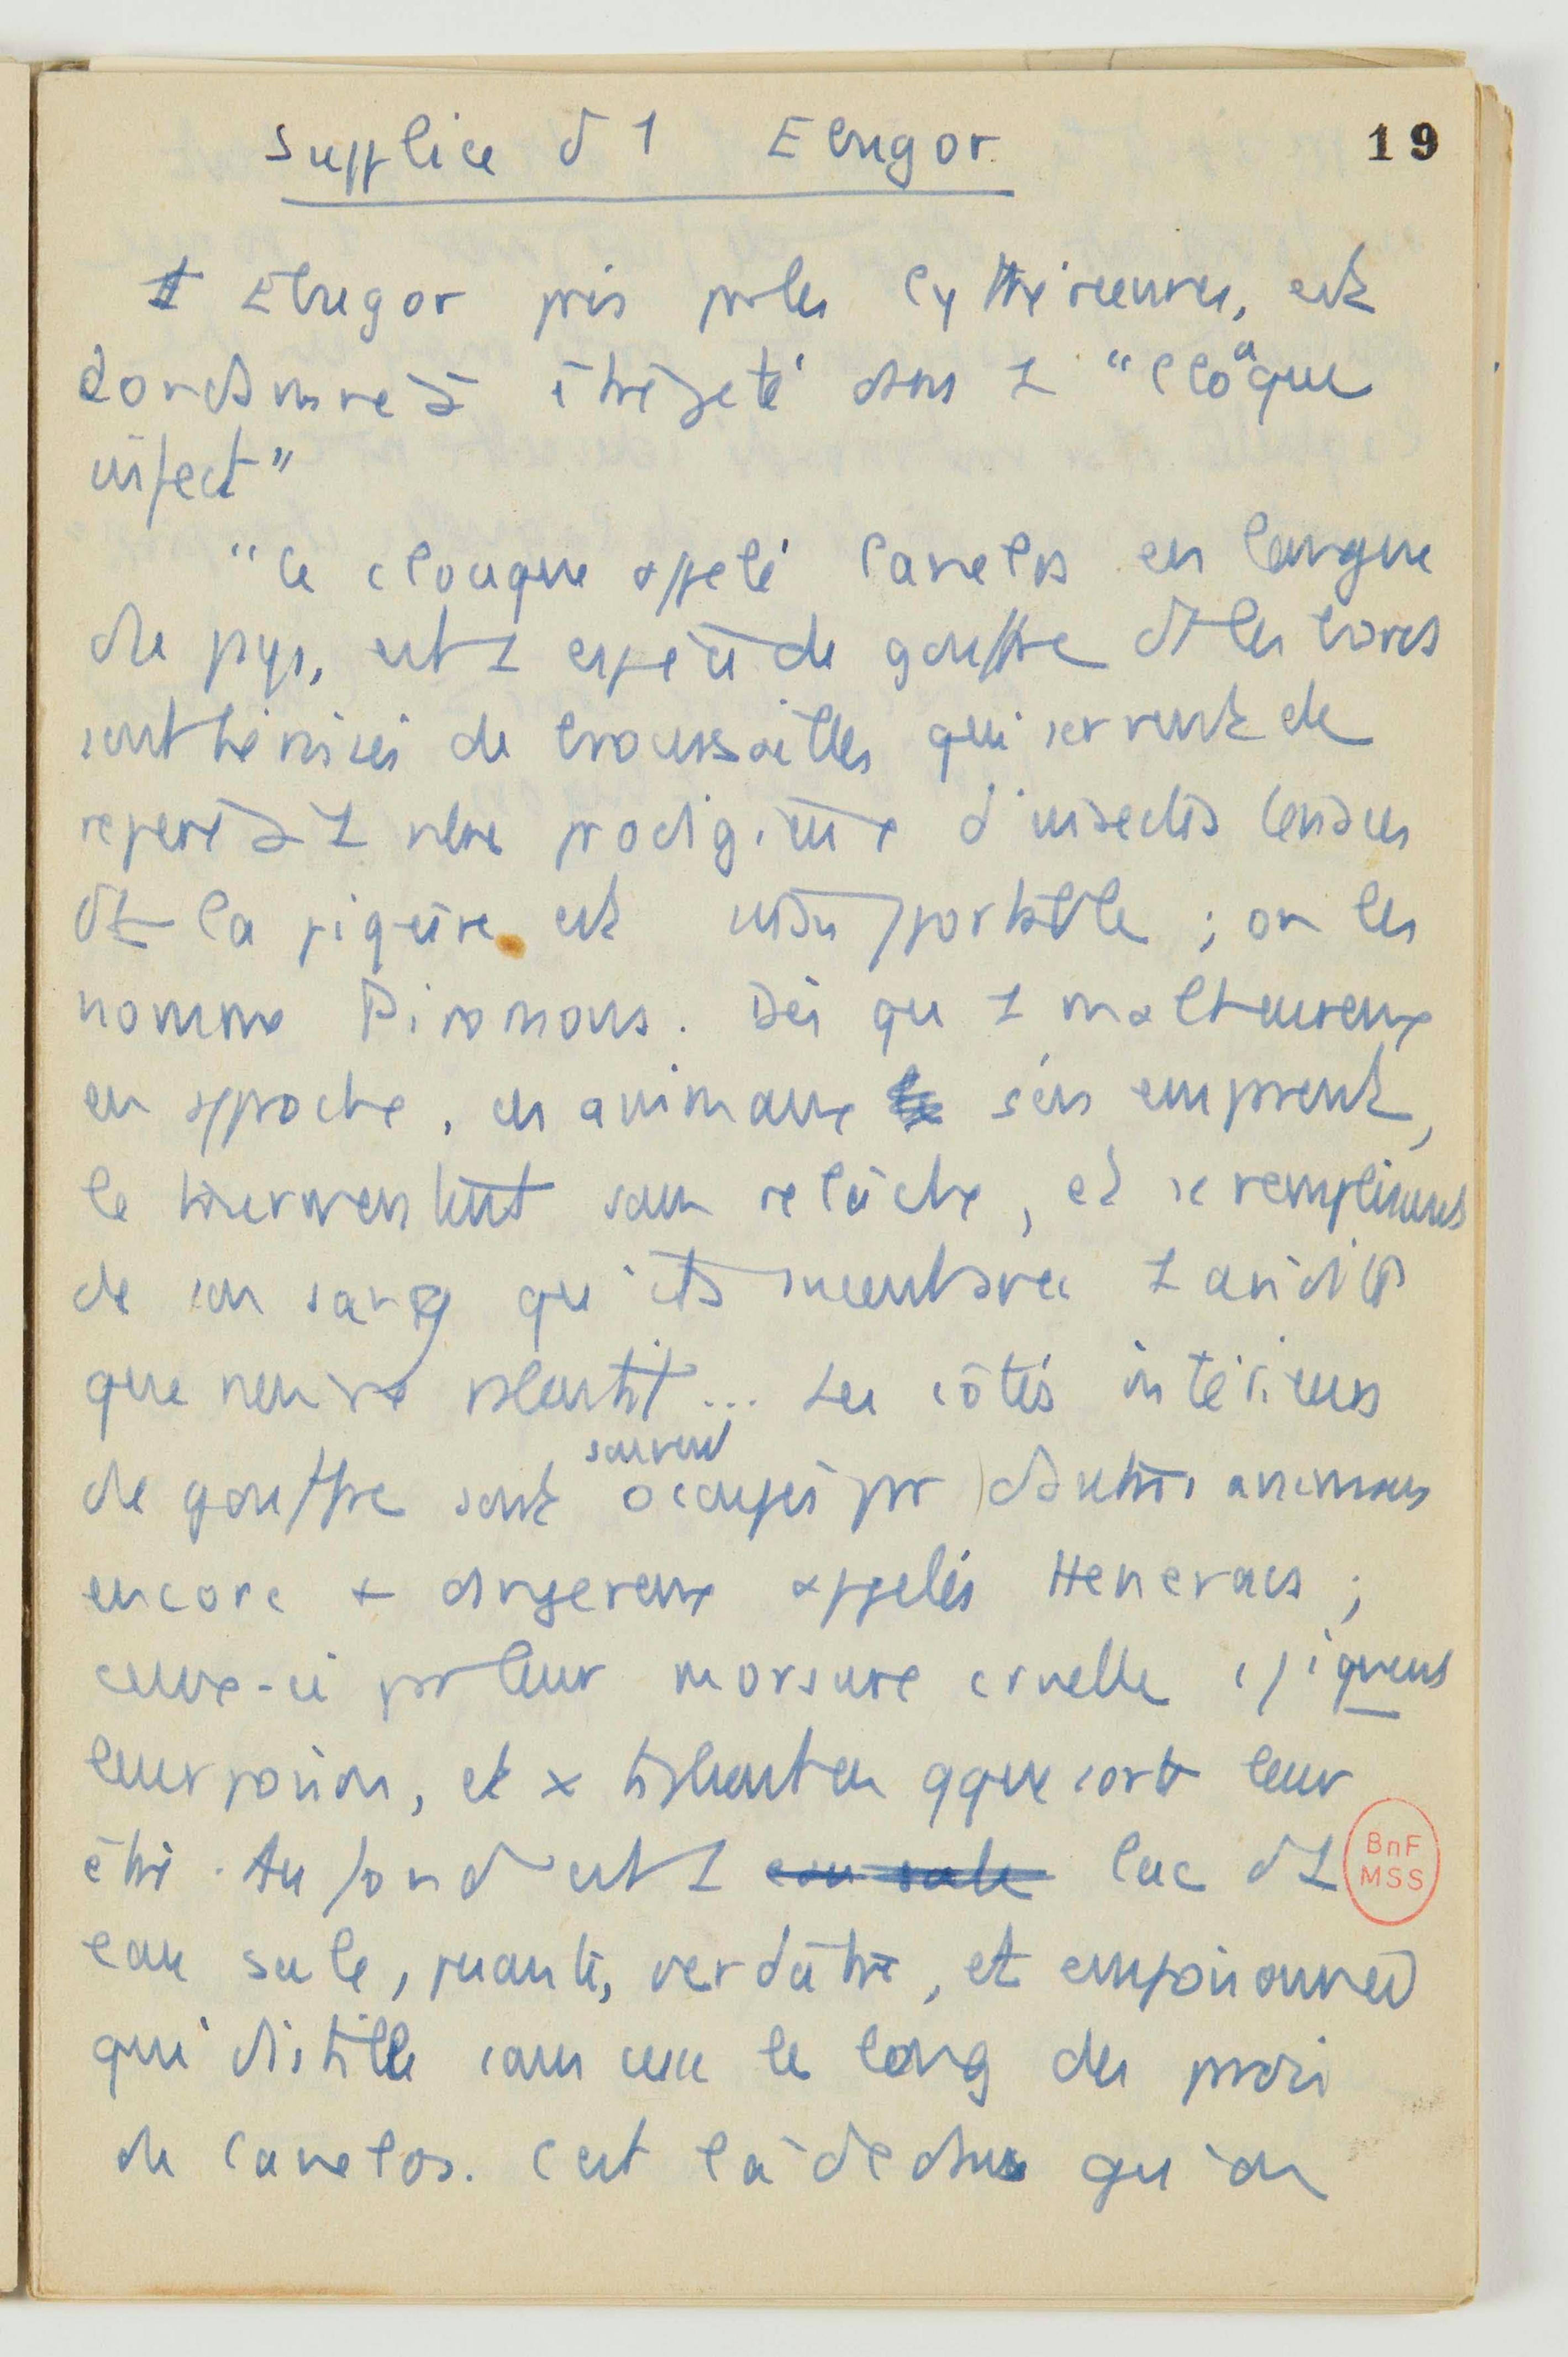 Supplice d 1 Ebugor
19
1 Ebugor pris par les Cythéreennes, est
condamné à être jeté dans 1 "cloaque
infect"
"Ce cloaque appelé Canelos en langue
du pays, est 1 espèce de gouffre dt les bords
sont hérissés de broussailles qui servent de
repère à 1 nbre prodigieux d'insectes
dt la piqûre est insupportable ; on les
nomme . Dès qu 1 malheureux
en approche, ces animaux s'en emprent,
le tourmentent sans relâche, et se remplissent
de son sang qu'ils sucent avec 1 avidité
que rien ne ralentit... Les côtés intérieurs
du gouffre sont souvent occupés par d'autres animaux
encore + dangereux appelés ;
ceux-ci par leur morsure cruelle
leur poison, et x en qque sorte leur
être. Au fond est 1 eau sale lac d 1
BnF
MSS
eau sale, puante, verdâtre, et empoisonnée
qui distille sans cesse le long des parois
du Canelos. C'est là dedans qu'on